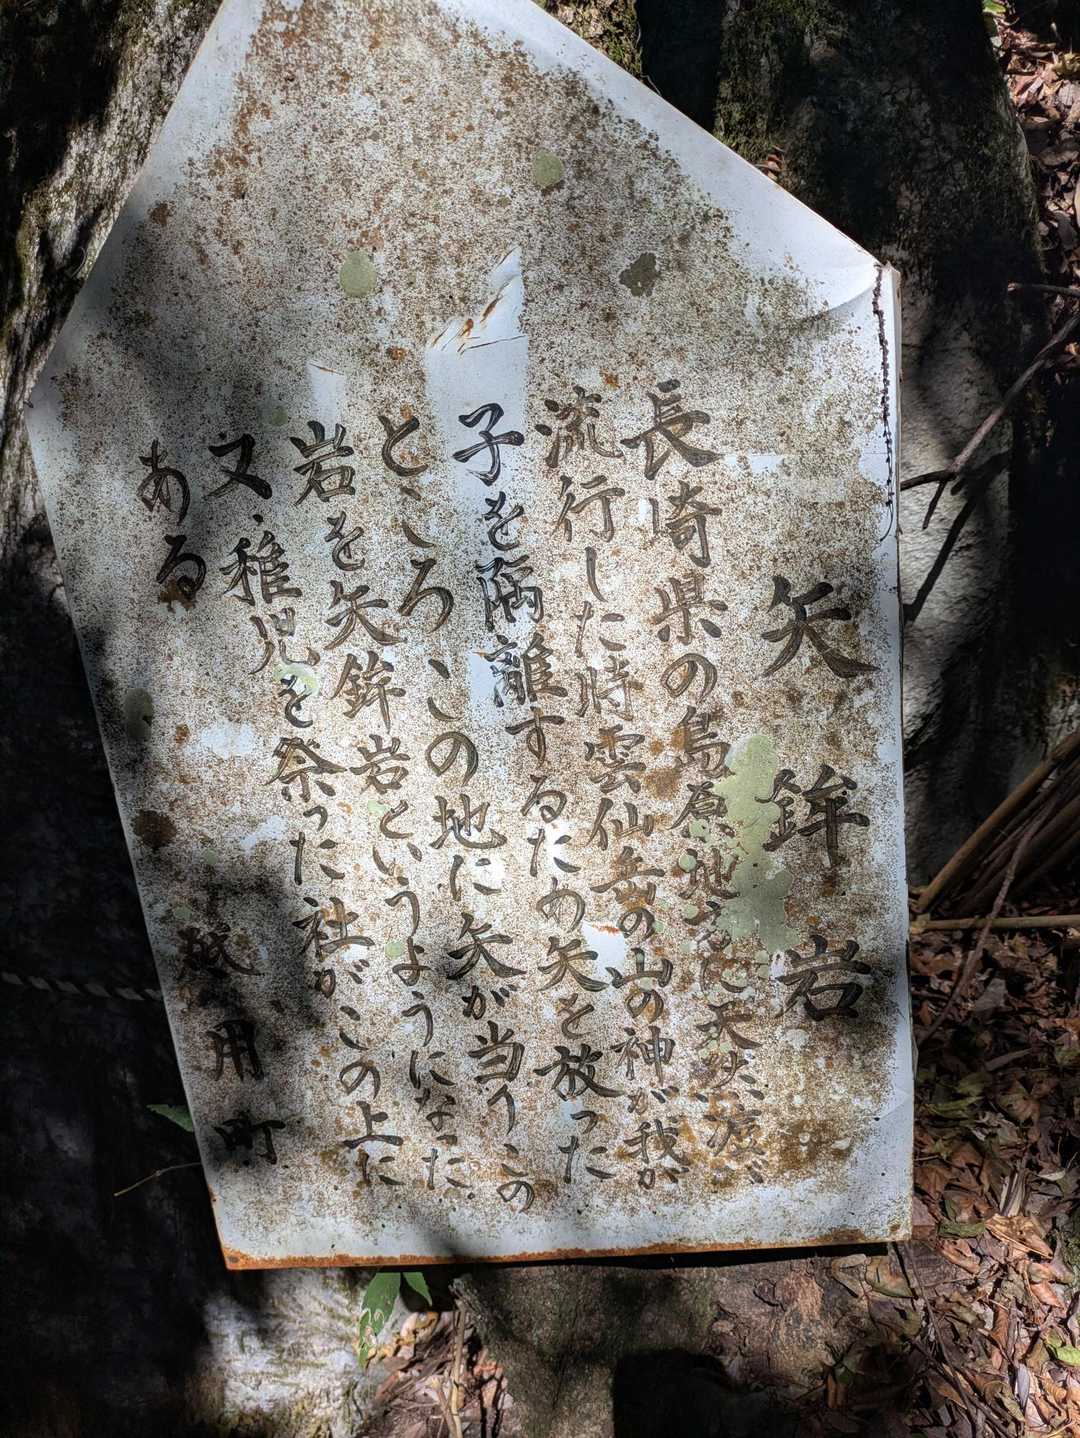 矢鉾岩
長崎県の島原地方に天然痘が
流行した時雲仙岳の山の神が我が
子を隔離するため矢を放った
ところこの地に矢が当うこの
岩を矢鉾岩というようになった
又、稚児を祭った社がこの上に
ある
砥用町